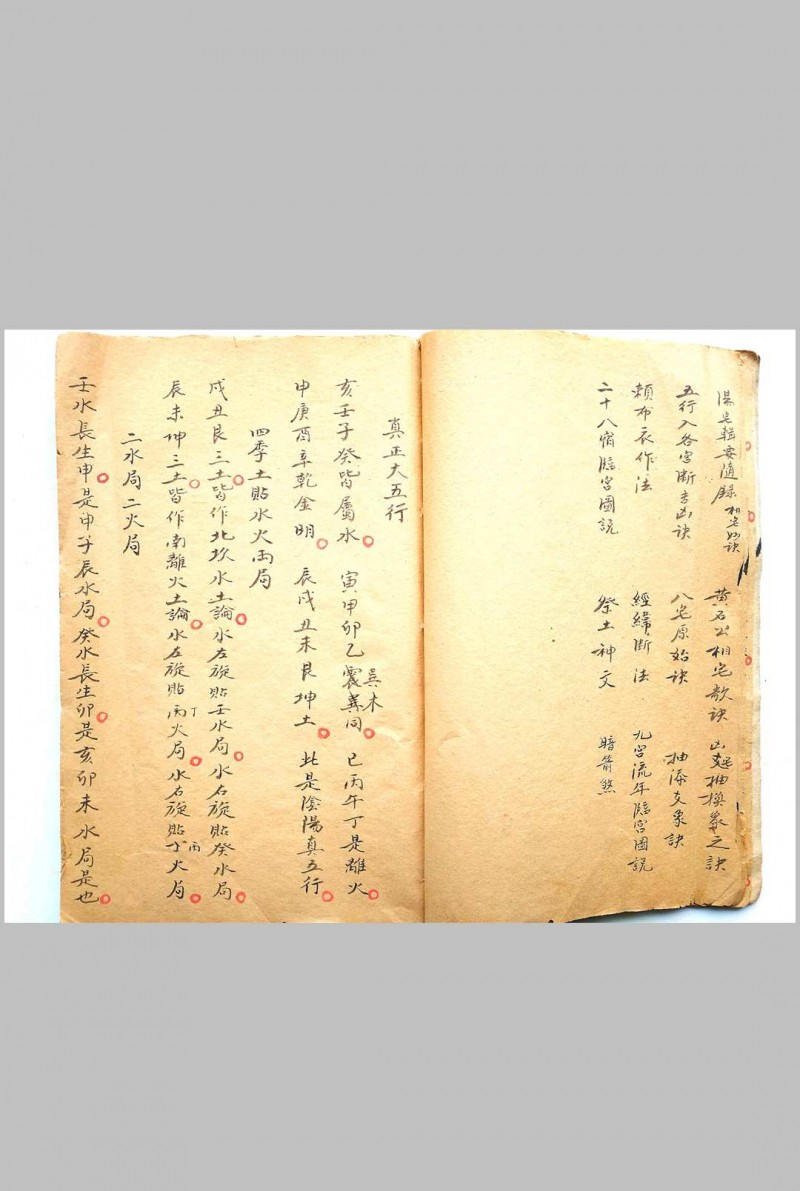 陽宅輯要隨錄 相宅妙訣 黃石公相宅歌訣 凶 抽換象之訣
五行入各宮斷吉凶訣 八宅原始訣 抽添爻象訣
賴布衣作法 經緯斷法 九宮流年臨宮圖説
二十八宿臨宮圖説 祭土神文 暗箭煞
真正大五行
亥壬子癸皆屬水 寅甲卯乙震巽同 巽木 巳丙午丁是離火
申庚酉辛乾金明 辰戌丑未艮坤土 此是陰陽真五行
四季土貼水火両局
戌丑艮三土皆作北坎水土論水左旋貼壬水局水右旋貼癸水局
辰未坤三土皆作南離火土論水左旋貼丙丁火局水右旋貼丁丙火局
二水局二火局
壬水長生申是申子辰水局癸水長生卯是亥卯未水局是也